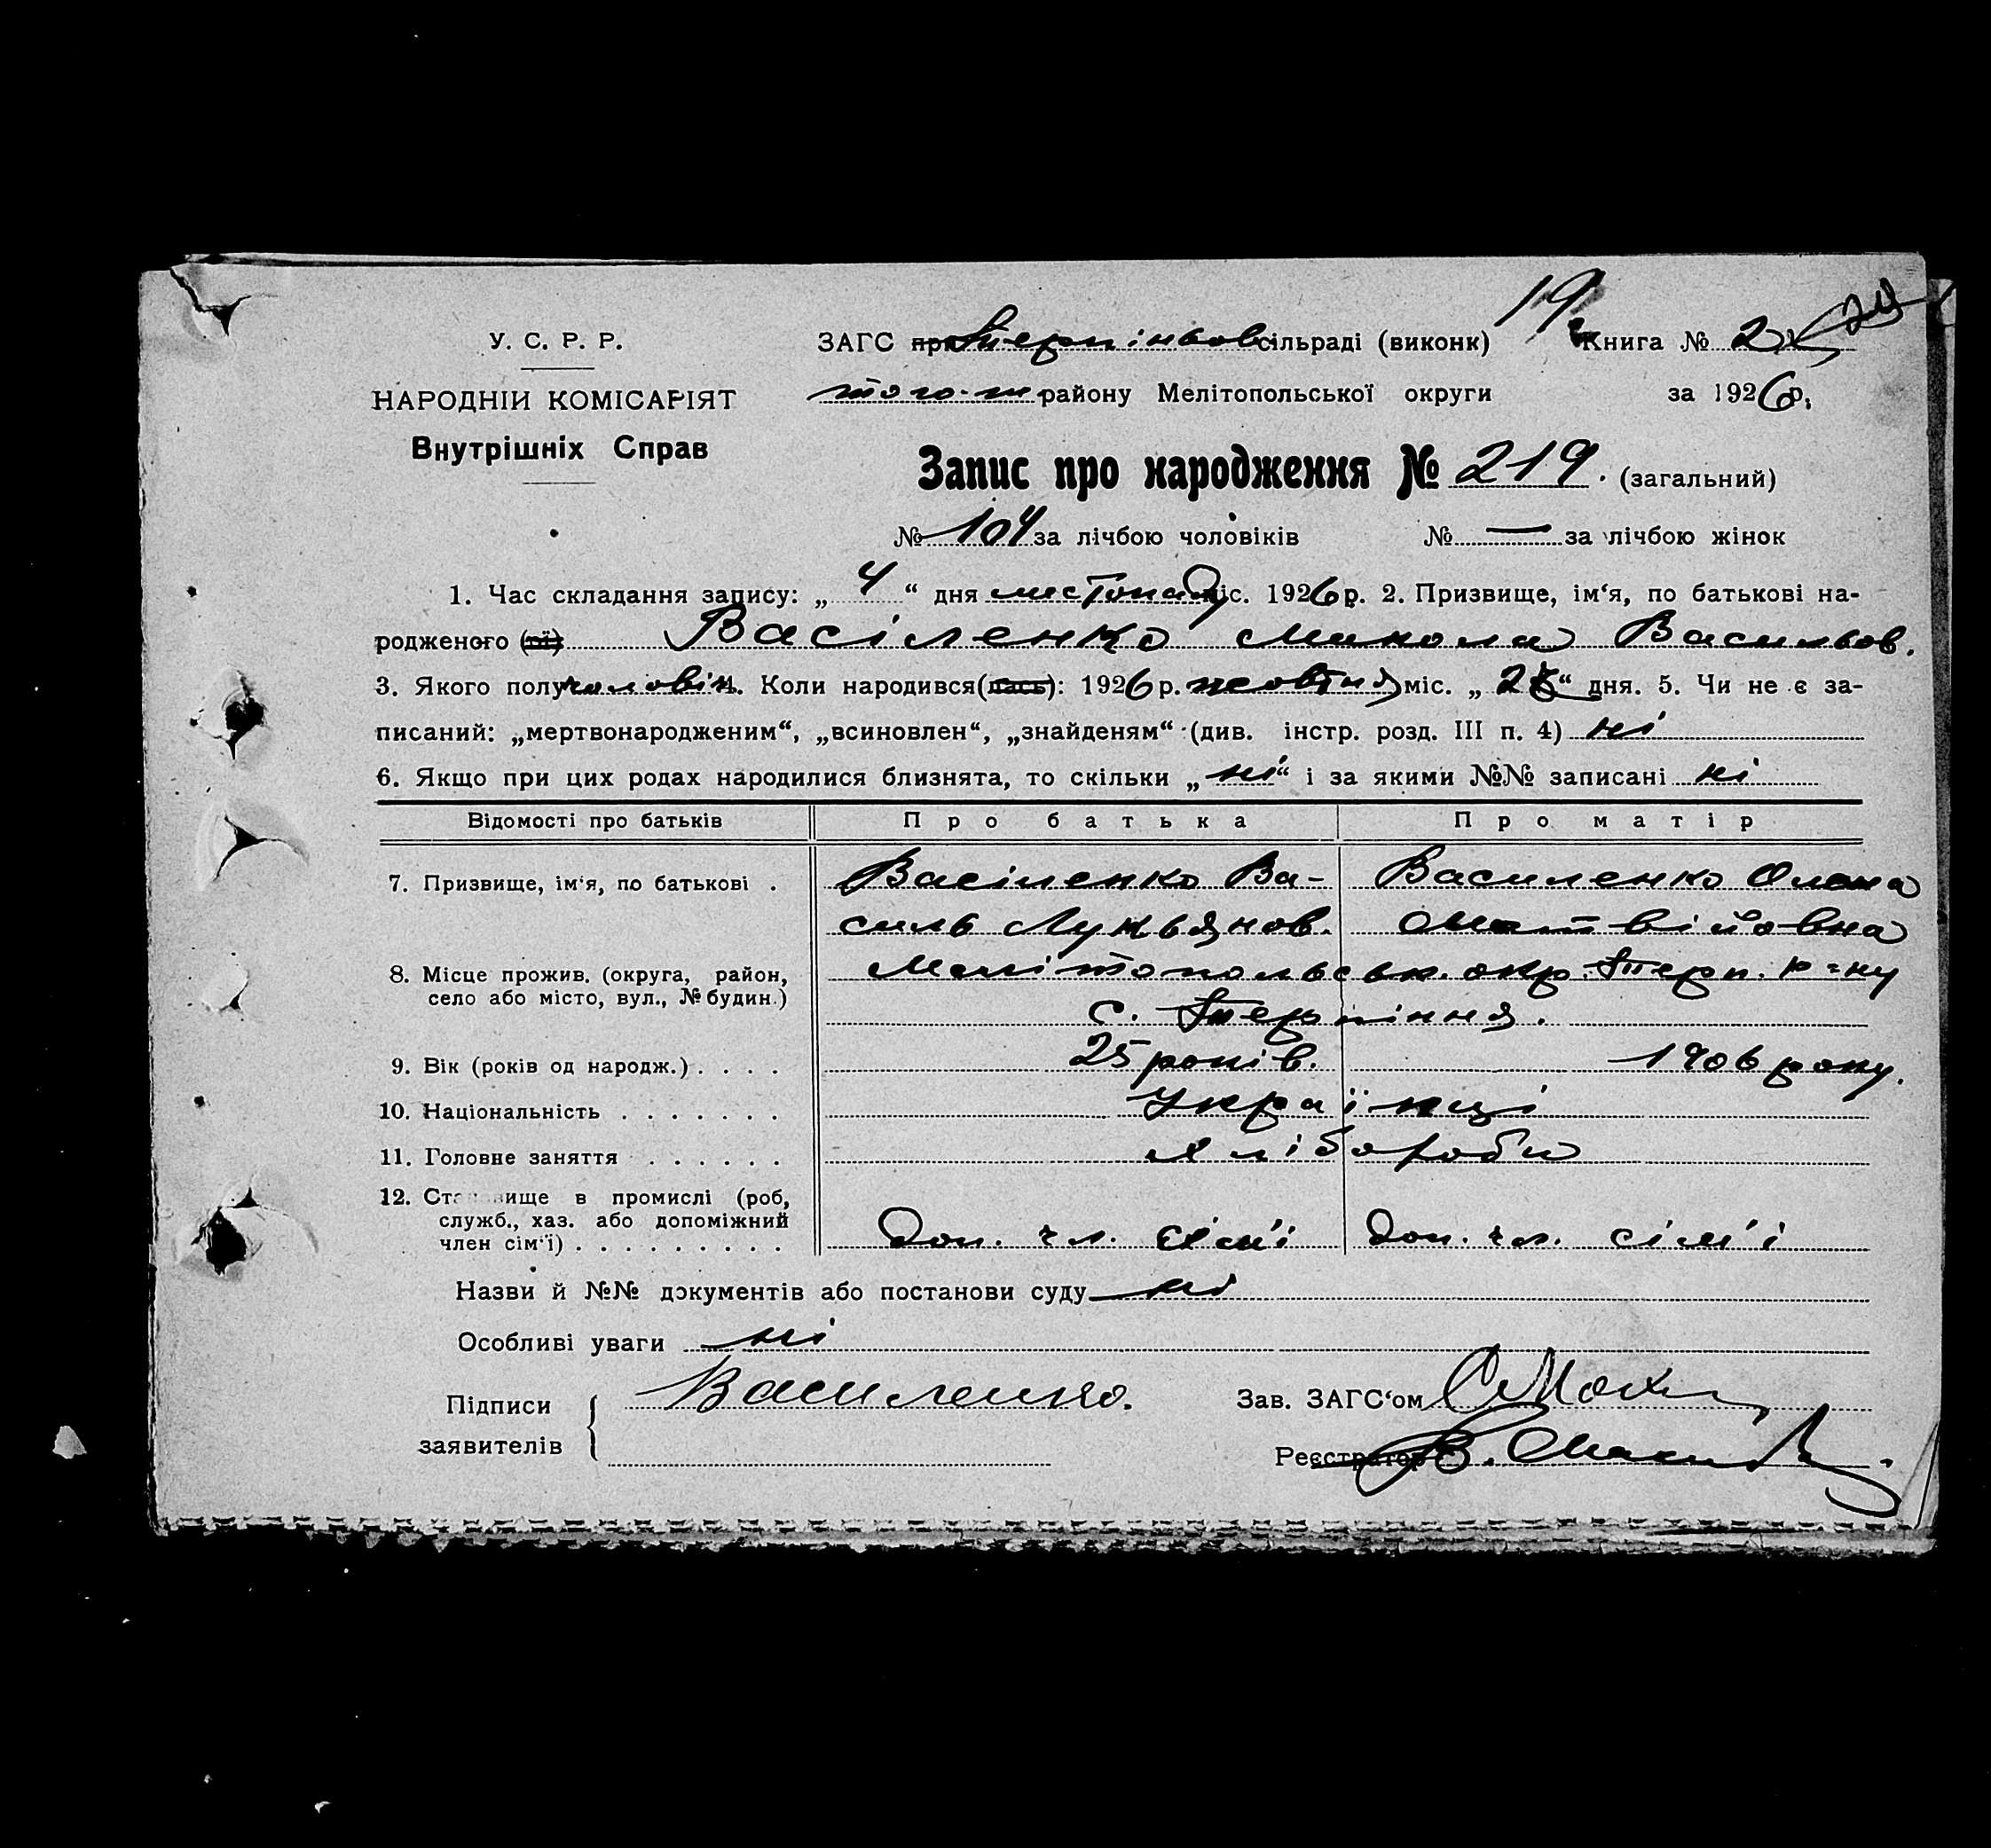 У. С. Р. Р.
НАРОДНІЙ КОМІСАРІЯТ
Внутрішніх Справ
19
ЗАГС при Терпіньов. сільраді (виконк) Книга № 2
того-ж району Мелітопольської округи за 1926 р.
Запис про народження № 219. (загальний)
№ 104 за лічбою чоловіків № — за лічбою жінок
1. Час складання запису: „ 4 “ дня листопад міс. 1926 р. 2. Призвище, ім‘я, по батькові на-
родженого (ої) Васіленко Микола Васильов.
3. Якого полу чоловіч. Коли народився (лась): 1926 р. жовтня міс. „ “ дня. 5. Чи не є за-
писаний: „мертвонародженим“, „всиновлен“, „знайденям“ (див. інстр. розд. III п. 4) ні
6. Якщо при цих родах народилися близнята, то скільки „ ні “ і за якими №№ записані ні
Відомості про батьків Про батька Про матір
7. Призвище, ім‘я, по батькові . Васіленко Ва- Василенко Олена
силь Лукьянов. Матвійовна
8. Місце прожив. (округа, район, Мелітопольськ. окр. Терп. р-ну
село або місто, вул., № будин.) с. Терпіння.
9. Вік (років од народж.) . . . . 25 років. 1906 року.
10. Національність . . . . . . . Українці
11. Головне заняття . . . . . . Хлібороби
12. Становище в промислі (роб,
служб., хаз. або допоміжний
член сім‘ї) . . . . . . . . . Доп. чл. сім'ї Доп. чл. сім'ї
Назви й №№ документів або постанови суду ні
Особливі уваги ні
Підписи Василенко. Зав. ЗАГС‘ом
заявителів Реєстратор В.